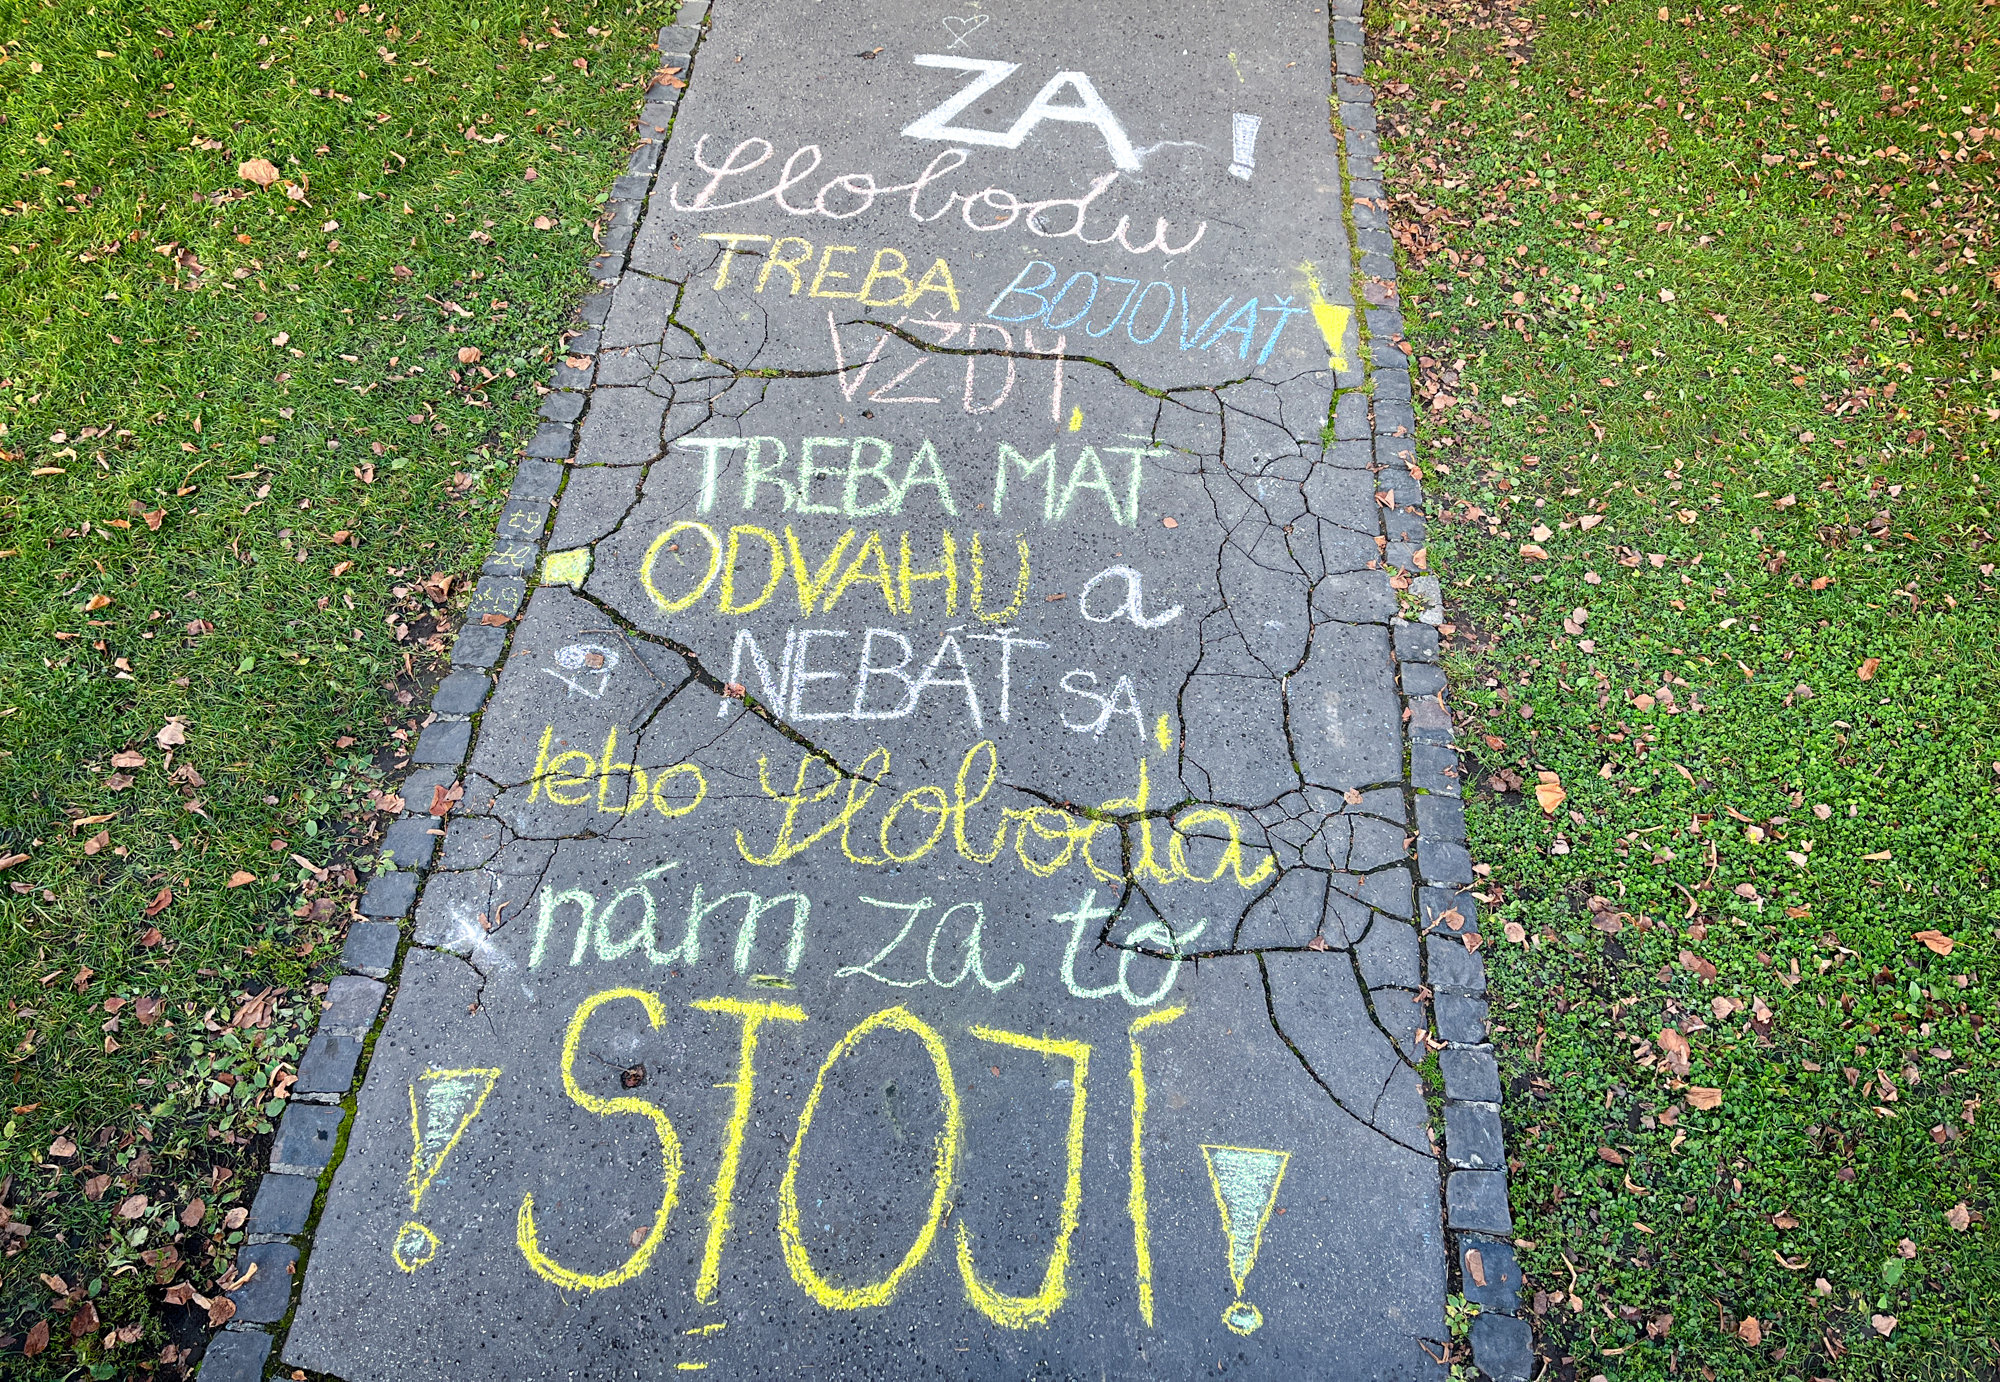 ZA !
Slobodu
TREBA BOJOVAŤ!
VŽDY,
TREBA MAŤ
ODVAHU a
NEBÁŤ SA,
lebo Sloboda
nám za to
! STOJÍ !